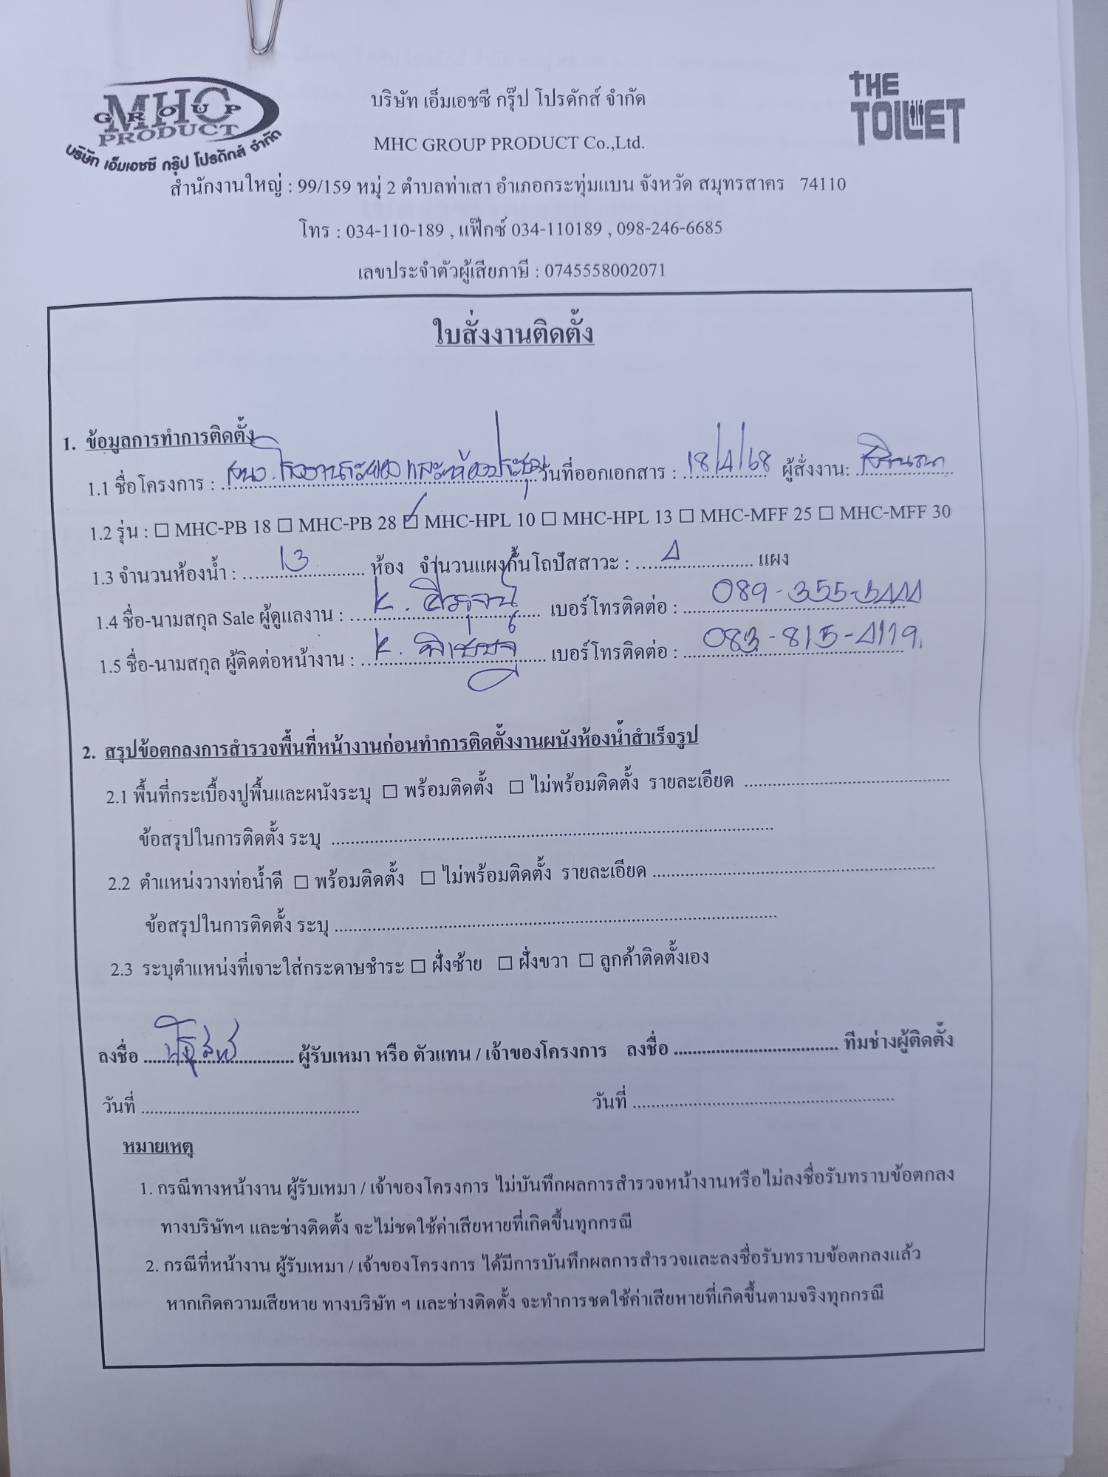 MHC
GROUP
PRODUCT
บริษัท เอ็มเอชซี กรุ๊ป โปรดักส์ จำกัด
THE
TOILET
บริษัท เอ็มเอชซี กรุ๊ป โปรดักส์ จำกัด
MHC GROUP PRODUCT Co.,Ltd.
สำนักงานใหญ่ : 99/159 หมู่ 2 ตำบลท่าเสา อำเภอกระทุ่มแบน จังหวัด สมุทรสาคร 74110
โทร : 034-110-189 , แฟ๊กซ์ 034-110189 , 098-246-6685
เลขประจำตัวผู้เสียภาษี : 0745558002071
ใบสั่งงานติดตั้ง
1. ข้อมูลการทำการติดตั้ง
1.1 ชื่อโครงการ : และห้องประชุม วันที่ออกเอกสาร : 18/4/68 ผู้สั่งงาน:
1.2 รุ่น : ☐ MHC-PB 18 ☐ MHC-PB 28 ☑ MHC-HPL 10 ☐ MHC-HPL 13 ☐ MHC-MFF 25 ☐ MHC-MFF 30
1.3 จำนวนห้องน้ำ : 13 ห้อง จำนวนแผงกั้นโถปัสสาวะ : 4 แผง
1.4 ชื่อ-นามสกุล Sale ผู้ดูแลงาน : K. เบอร์โทรติดต่อ :
1.5 ชื่อ-นามสกุล ผู้ติดต่อหน้างาน : K. เบอร์โทรติดต่อ : 083-815-4119
2. สรุปข้อตกลงการสำรวจพื้นที่หน้างานก่อนทำการติดตั้งงานผนังห้องน้ำสำเร็จรูป
2.1 พื้นที่กระเบื้องปูพื้นและผนังระบุ ☐ พร้อมติดตั้ง ☐ ไม่พร้อมติดตั้ง รายละเอียด
ข้อสรุปในการติดตั้ง ระบุ
2.2 ตำแหน่งวางท่อน้ำดี ☐ พร้อมติดตั้ง ☐ ไม่พร้อมติดตั้ง รายละเอียด
ข้อสรุปในการติดตั้ง ระบุ
2.3 ระบุตำแหน่งที่เจาะใส่กระดาษชำระ ☐ ฝั่งซ้าย ☐ ฝั่งขวา ☐ ลูกค้าติดตั้งเอง
ลงชื่อ ผู้รับเหมา หรือ ตัวแทน / เจ้าของโครงการ ลงชื่อ ทีมช่างผู้ติดตั้ง
วันที่ วันที่
หมายเหตุ
1. กรณีทางหน้างาน ผู้รับเหมา / เจ้าของโครงการ ไม่บันทึกผลการสำรวจหน้างานหรือไม่ลงชื่อรับทราบข้อตกลง
ทางบริษัทฯ และช่างติดตั้ง จะไม่ชดใช้ค่าเสียหายที่เกิดขึ้นทุกกรณี
2. กรณีที่หน้างาน ผู้รับเหมา / เจ้าของโครงการ ได้มีการบันทึกผลการสำรวจและลงชื่อรับทราบข้อตกลงแล้ว
หากเกิดความเสียหาย ทางบริษัท ฯ และช่างติดตั้ง จะทำการชดใช้ค่าเสียหายที่เกิดขึ้นตามจริงทุกกรณี